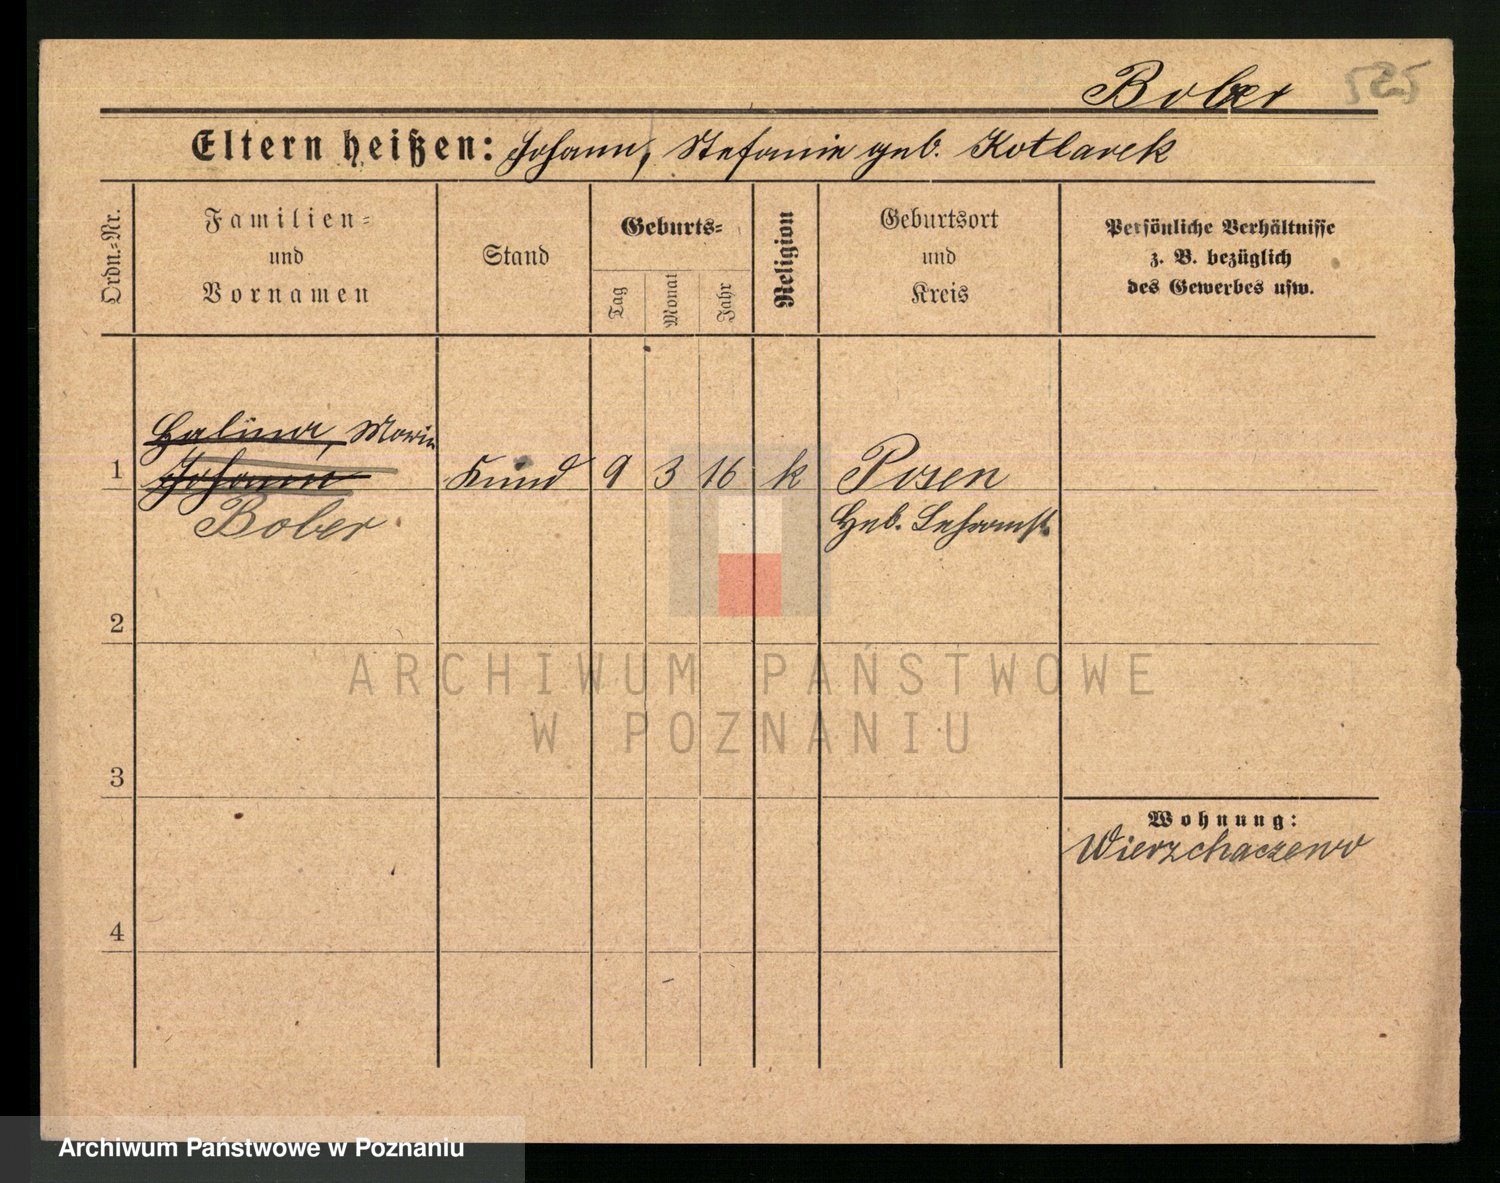 Bober 525
Eltern heißen: Johann, Stefanie geb. Kotlarek
Ordn.=Nr.
Familien=
und
Vornamen
Stand
Geburts=
Tag
Monat
Jahr
Religion
Geburtsort
und
Kreis
Persönliche Verhältnisse
z. B. bezüglich
des Gewerbes usw.
Halina, Maria
1 Johann Kind 9 3 16 k Posen
Bober Heb.
2
ARCHIWUM PAŃSTWOWE
W POZNANIU
3
Wohnung:
Wierzchaczewo
4
Archiwum Państwowe w Poznaniu